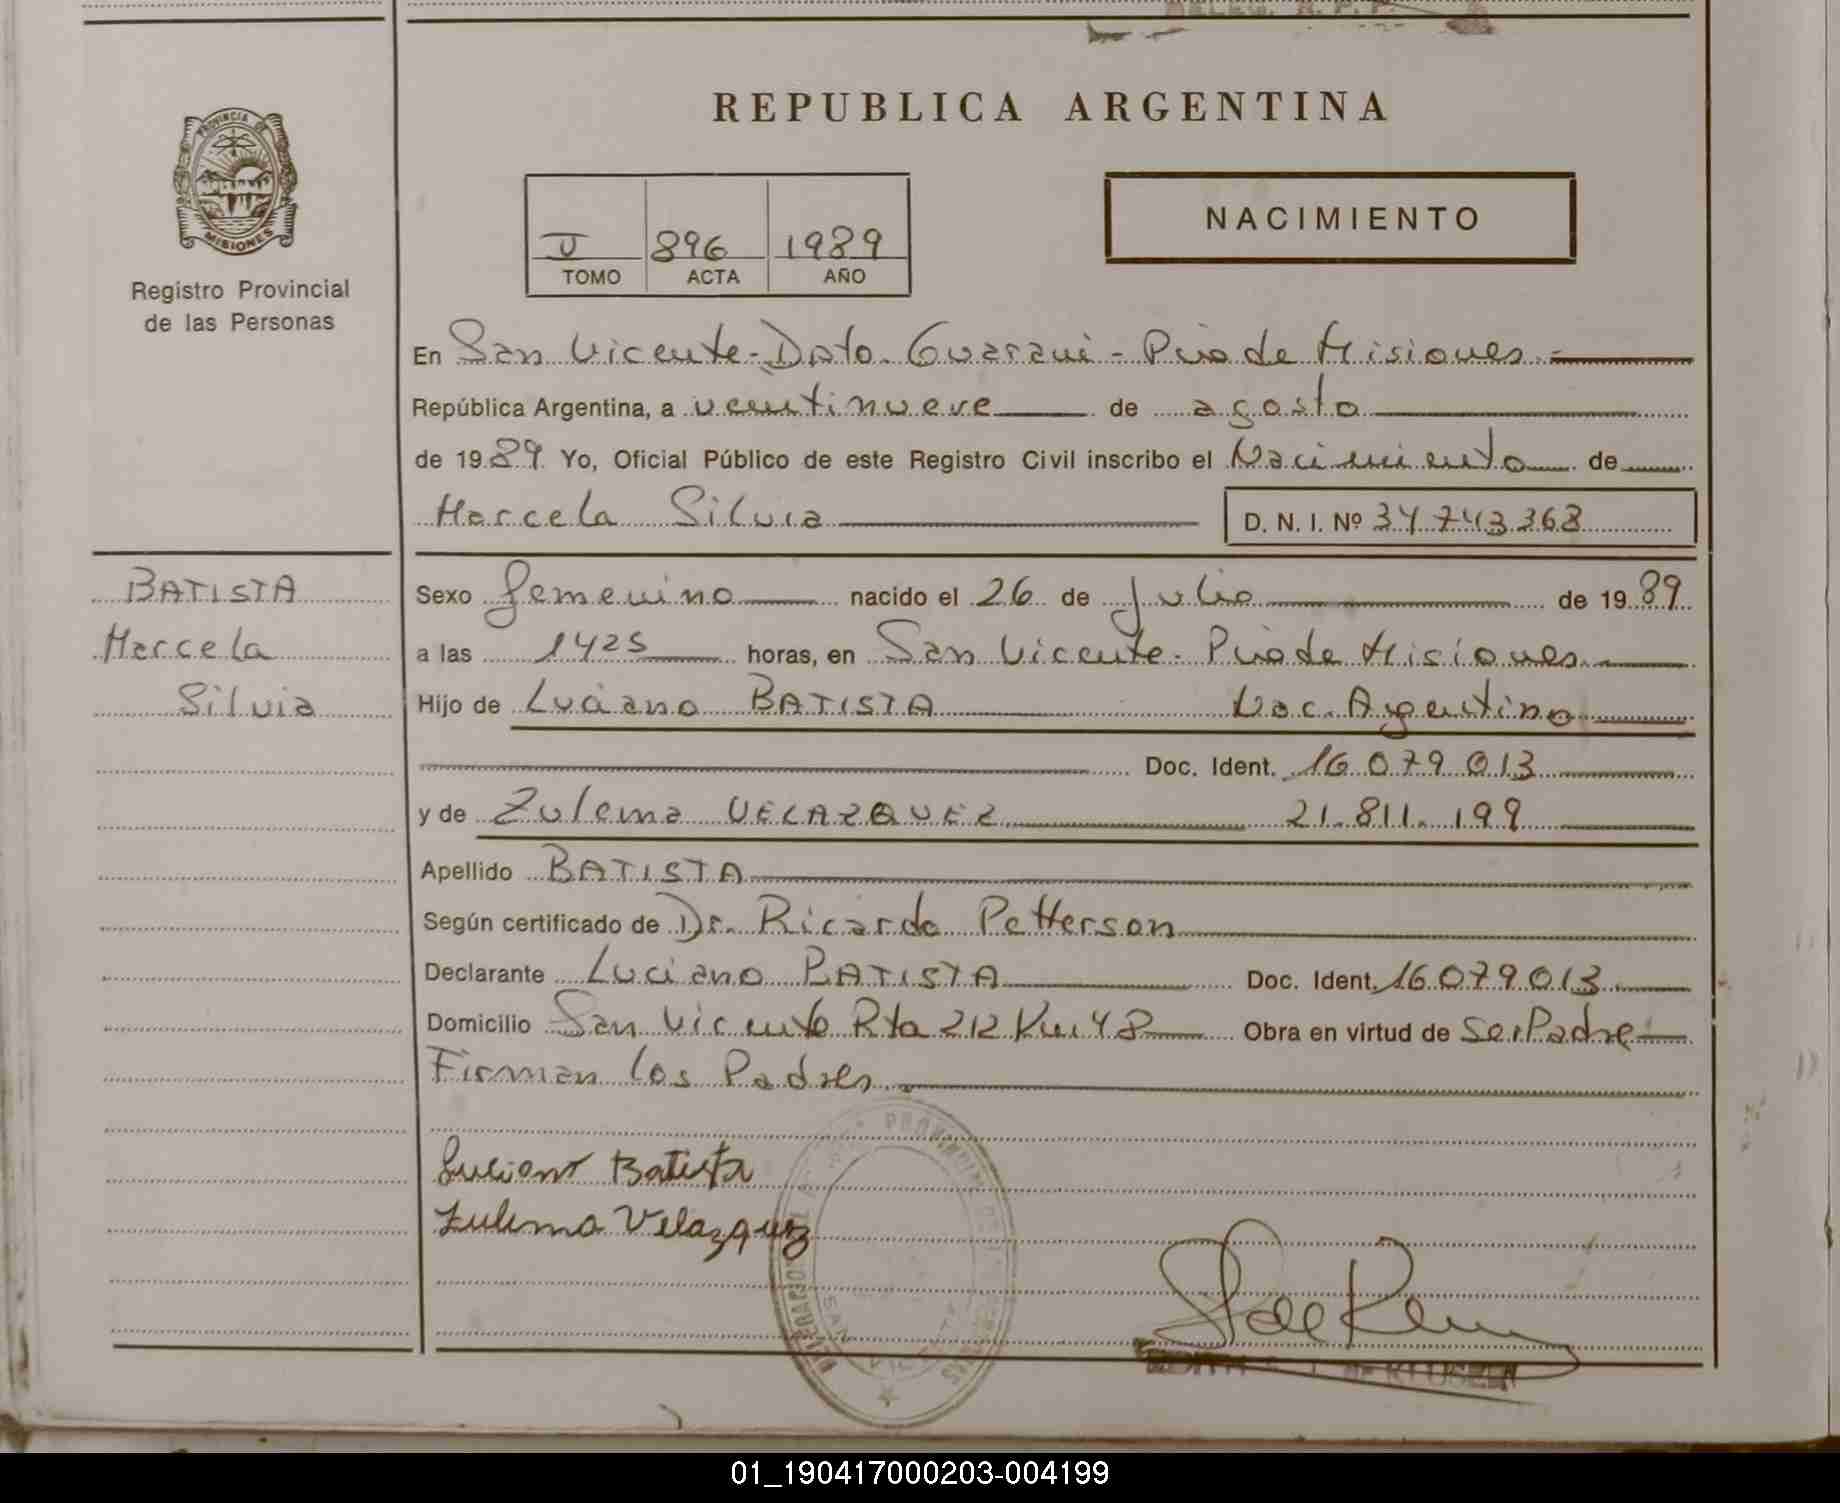 REPUBLICA ARGENTINA
PROVINCIA DE
MISIONES
Registro Provincial
de las Personas
NACIMIENTO
896 1989
TOMO ACTA AÑO
En San Vicente - Dpto. Guaraní - Pcia de Misiones
República Argentina, a veintinueve de agosto
de 1989 Yo, Oficial Público de este Registro Civil inscribo el Nacimiento de
Marcela Silvia D. N. I. Nº 34 743 368
BATISTA
Marcela
Silvia
Sexo femenino nacido el 26 de Julio de 1989
a las 1425 horas, en San Vicente - Pcia de Misiones
Hijo de Luciano BATISTA Nac. Argentino
Doc. Ident. 16 079 013
y de Zulema VELAZQUEZ 21.811.199
Apellido BATISTA
Según certificado de Dr. Ricardo Petterson
Declarante Luciano BATISTA Doc. Ident. 16 079 013
Domicilio San Vicente Rta 212 Km 48 Obra en virtud de Ser Padre
Firman los Padres
Luciano Batista
Zulema Velazquez
01_190417000203-004199